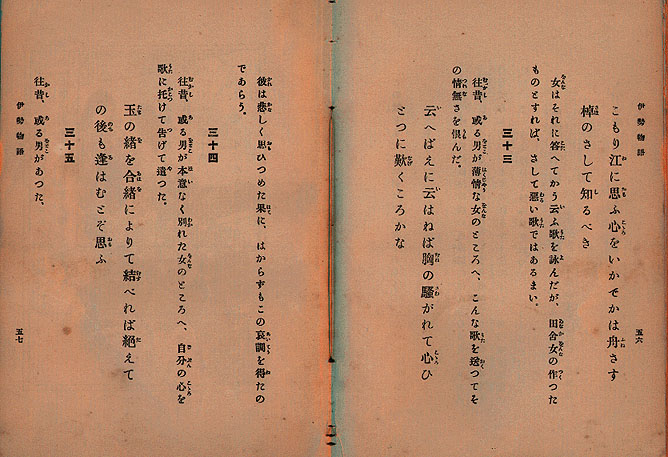 伊勢物語
五六
こもり江に思ふ心をいかでかは舟さす
棹のさして知るべき
女はそれに答へてかう云ふ歌を詠んだが、田舎女の作つた
ものとすれば、さして悪い歌ではあるまい。
三十三
往昔、或る男が薄情な女のところへ、こんな歌を送つてそ
の情無さを恨んだ。
云へばえに云はねば胸の騒がれて心ひ
とつに歎くころかな
彼は悲しく思ひつめた果に、はからずもこの哀調を得たの
であらう。
三十四
往昔、或る男が本意なく別れた女のところへ、自分の心を
歌に托けて告げて遣つた。
玉の緒を合緒によりて結べれば絶えて
の後も逢はむとぞ思ふ
三十五
往昔、或る男があつた。
伊勢物語
五七